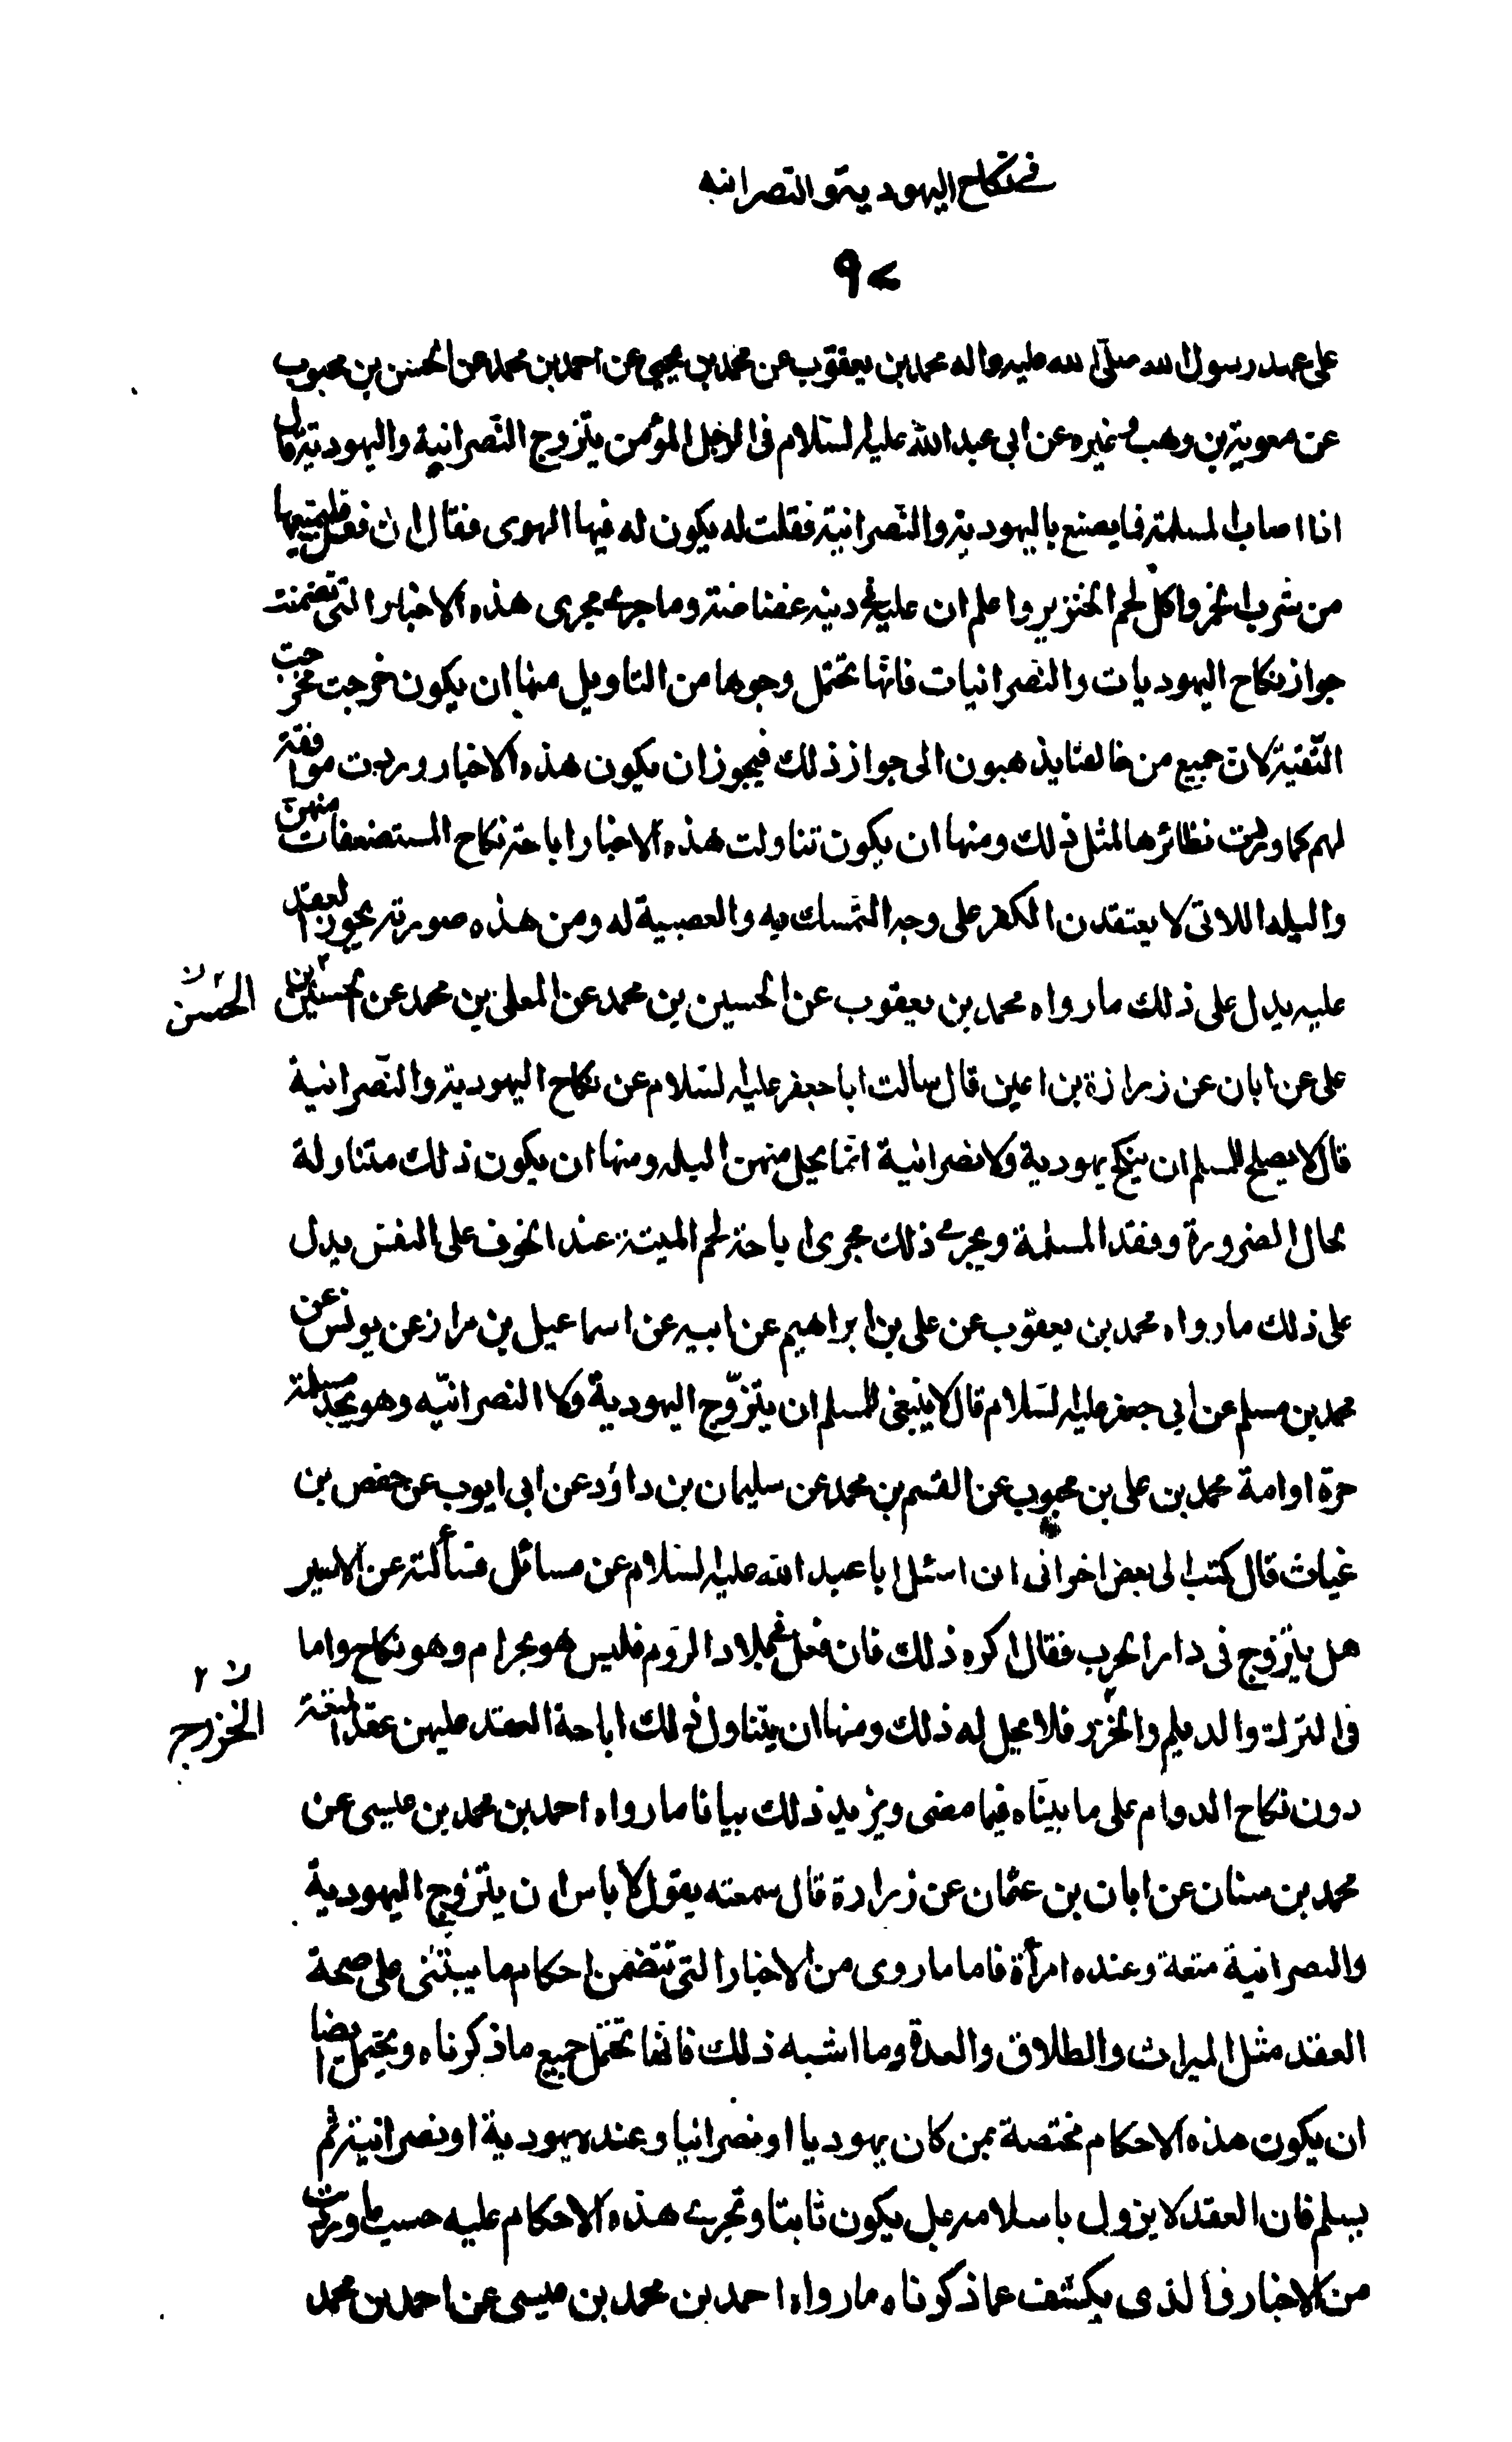 في نكاح اليهودية والنصرانيه
٩٧
على عهد رسول الله صلى الله عليه واله محمد بن يعقوب عن محمد بن يحيى عن احمد بن محمد عن الحسن بن محبوب
عن معوية بن وهب وغيره عن ابي عبد الله عليه السلام فى الرجل المؤمن يتزوج النصرانية واليهودية قال
اذا اصاب المسلمة فما يصنع باليهودية والنصرانية فقلت له يكون له فيها الهوى فقال ان فعل فليمنعها
من شرب الخمر واكل لحم الخنزير واعلم ان عليه فى دينه غضاضة وما جرى مجرى هذه الاخبار التى تضمنت
جواز نكاح اليهوديات والنصرانيات فانها تحتمل وجوها من التاويل منها ان يكون خرجت مخرجت
التقية لان جميع من خالفنا يذهبون الى جواز ذلك فيجوز ان يكون هذه الاخبار وردت موافقة
لهم كما وردت نظائرها لمثل ذلك ومنها ان يكون تناولت هذه الاخبار اباحة نكاح المستضعفات منهن
والبله اللاتى لا يعتقدن الكفر على وجه التمسك به والعصبية له ومن هذه صورته يجوز العقد
عليه يدل على ذلك ما رواه محمد بن يعقوب عن الحسين بن محمد عن المعلى بن محمد عن الحسين بن
الحسن
على عن ابان عن زرارة بن اعين قال سالت ابا جعفر عليه السلام عن نكاح اليهودية والنصرانية
قال لا يصلح للمسلم ان ينكح يهودية ولا نصرانية انما يحل منهن البله ومنها ان يكون ذلك متناولة
بحال الضرورة وفقد المسلمة ويجرى ذلك مجرى اباحة لحم الميتة عند الخوف على النفس يدل
على ذلك ما رواه محمد بن يعقوب عن على بن ابراهيم عن ابيه عن اسماعيل بن مرار عن يونس عن
محمد بن مسلم عن ابى جعفر عليه السلام قال لا ينبغى للمسلم ان يتزوّج اليهودية ولا النصرانيّه وهو يجد مسلمة
حرة او امة محمد بن على بن محبوب عن القسم بن محمد عن سليمان بن داؤد عن ابى ايوب عن حفص بن
غياث قال كتب الى بعض اخوانى ان اسئل ابا عبد الله عليه السلام عن مسائل فسألته عن الاسير
هل يتزوج فى دار الحرب فقال اكره ذلك فان فعل فى بلاد الروم فليس هو بحرام وهو نكاح واما
فى الترك والديلم والخزر فلا يحل له ذلك ومنها ان يتناول ذلك اباحة العقد عليهن عقد المتعة
الخزرج
دون نكاح الدوام على ما بيناه فيما مضى ويزيد ذلك بيانا ما رواه احمد بن محمد بن عيسى عن
محمد بن سنان عن ابان بن عثمان عن زرارة قال سمعته يقول لا باس ان يتزوج اليهودية
والنصرانية متعة وعنده امرأة فاما ما روى من الاخبار التى تتضمن احكام ما يبتنى على صحة
العقد مثل الميراث والطلاق والعدة وما اشبه ذلك فانها تحتمل جميع ما ذكرناه ويحتمل ايضا
ان يكون هذه الاحكام مختصة بمن كان يهوديا او نصرانيا وعنده يهودية او نصرانية ثم
يسلم فان العقد لا يزول باسلامه بل يكون ثابتا وتجرى هذه الاحكام عليه حسب ما وردت
من الاخبار فى الذى يكشف عما ذكرناه ما رواه احمد بن محمد بن عيسى عن احمد بن محمد